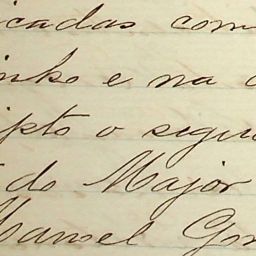 icadas com
inho e na
ipto o segu
do Major
Manoel Gon